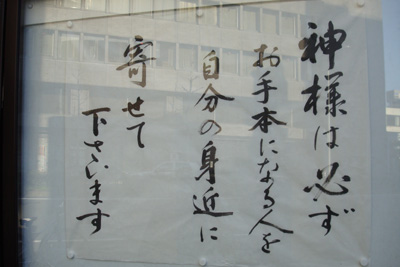 神様は必ず
お手本になる人を
自分の身近に
寄せて
下さいます